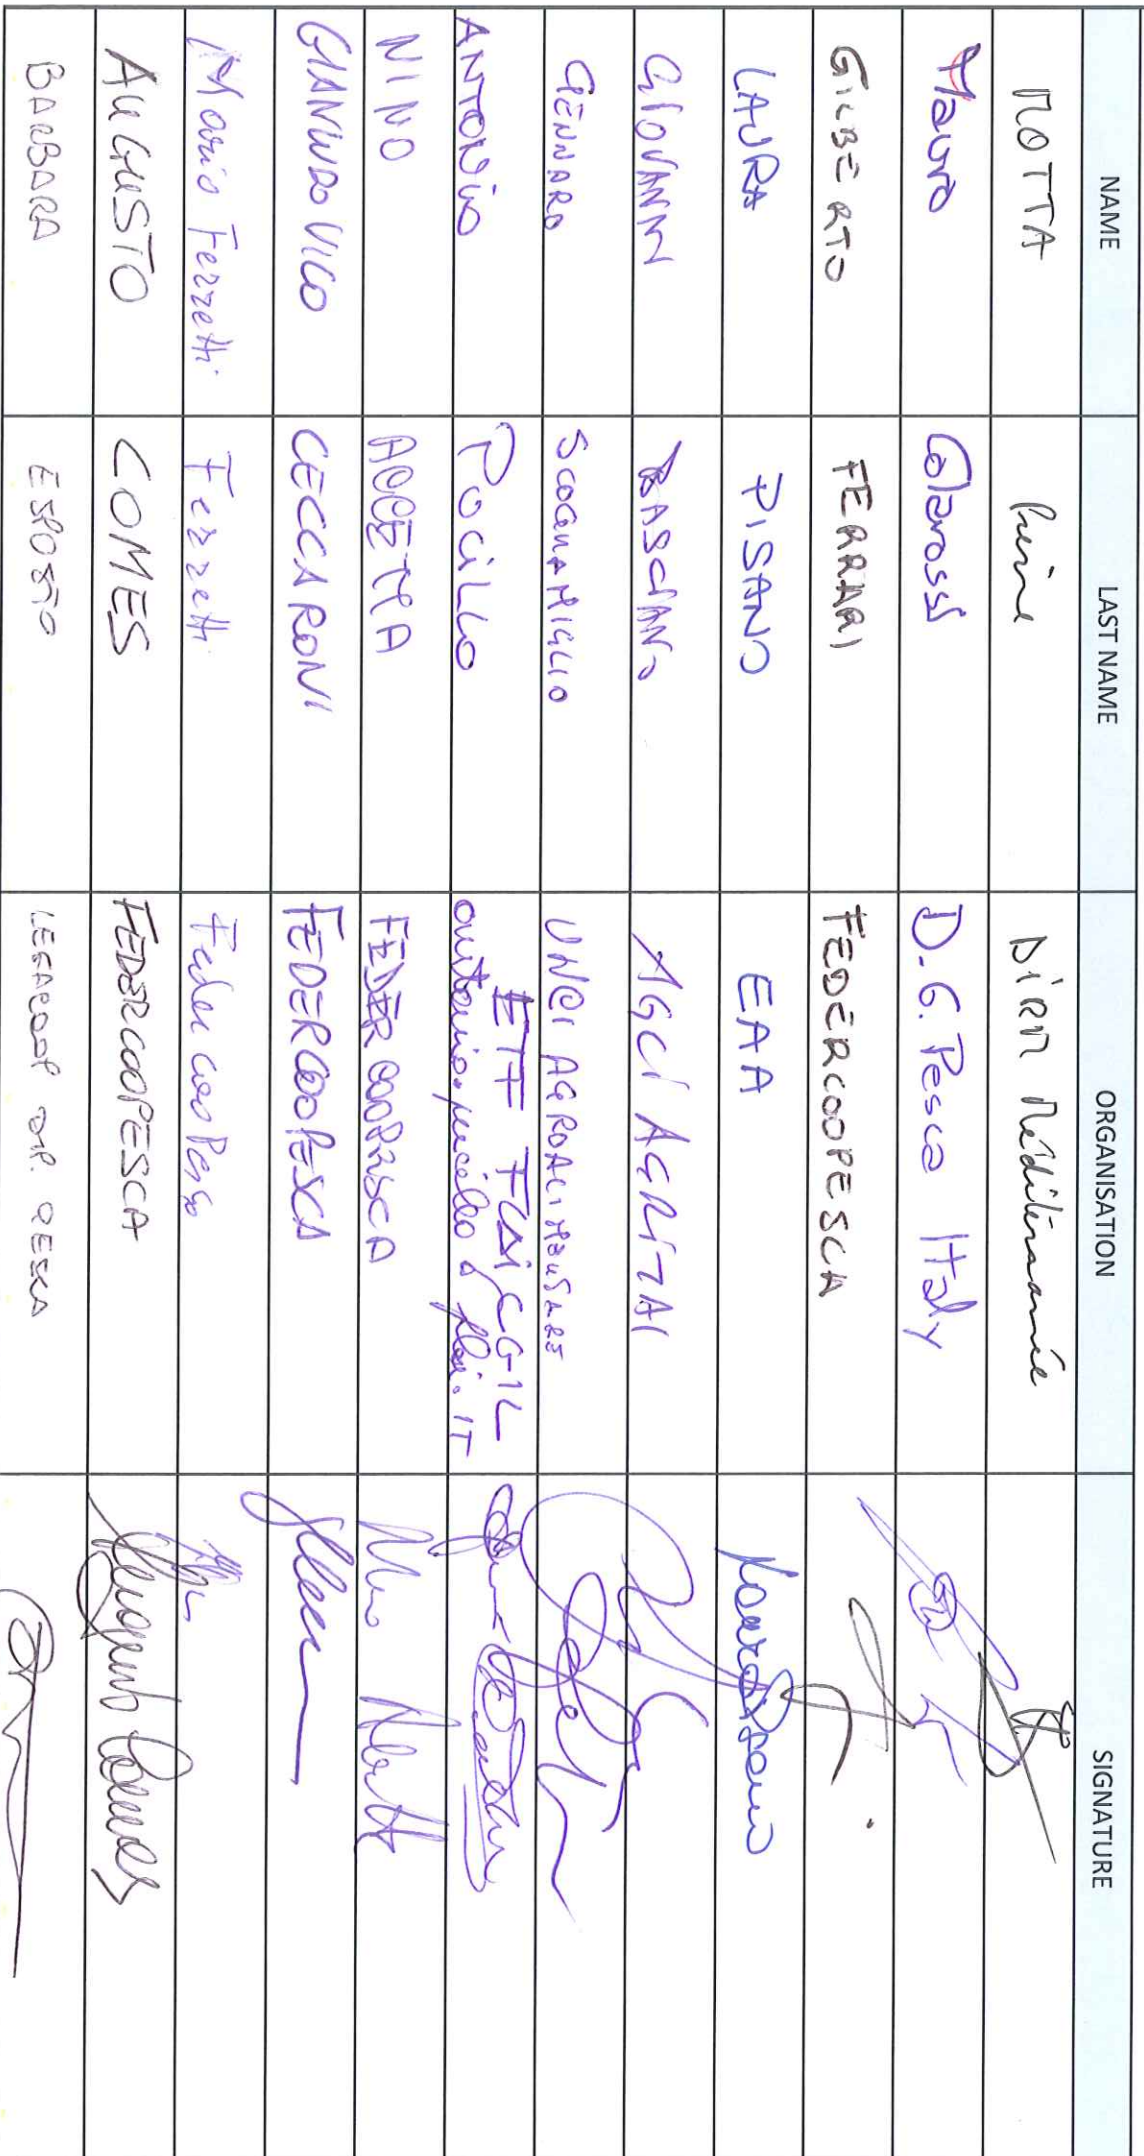 NAME LAST NAME ORGANISATION SIGNATURE
MOTTA DIRM Méditerranée
Mauro Colarossi D.G. Pesca Italy
GILBERTO FERRARI FEDERCOOPESCA
LAURA PISANO EAA
GIOVANNI BASCIANO AGCI AGRITAL
GENNARO SCOGNAMIGLIO UNCI AGROALIMENTARE
ANTONIO PUCILLO ETF FLAI CGIL
antonio.pucillo@flai.it
NINO ACCETTA FEDERCOOPESCA
GIANLUDOVICO CECCARONI FEDERCOOPESCA
Mario Ferretti Ferretti FedercooPesca
AUGUSTO COMES FEDERCOOPESCA
BARBARA ESPOSTO LEGACOOP DIP. PESCA